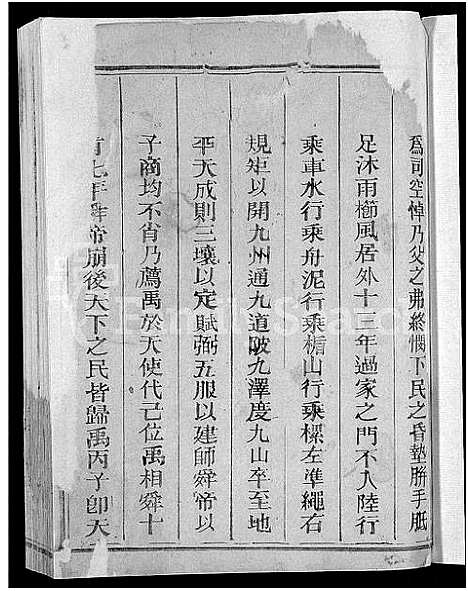 爲司空悼乃父之弗終憫下民之昏墊胼手胝
足沐雨櫛風居外十三年過家之門不入陸行
乘車水行乘舟泥行乘楯山行乘樏左準繩右
規矩以開九州通九道陂九澤度九山卒至地
平天成則三壤以定賦弼五服以建師舜帝以
子商均不肖乃薦禹於天使代己位禹相舜十
有七年舜帝崩後天下之民皆歸禹丙子卽天